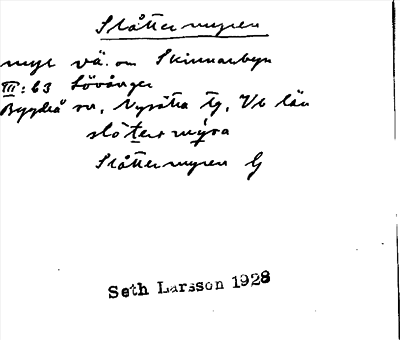 Slåttermyren
myr vä. om Skinnarbyn
III:63 Lövånger
Bygdeå sn, Nysätra tg, Vb län
slåtermyra
Slåttermyren G
Seth Larsson 1928